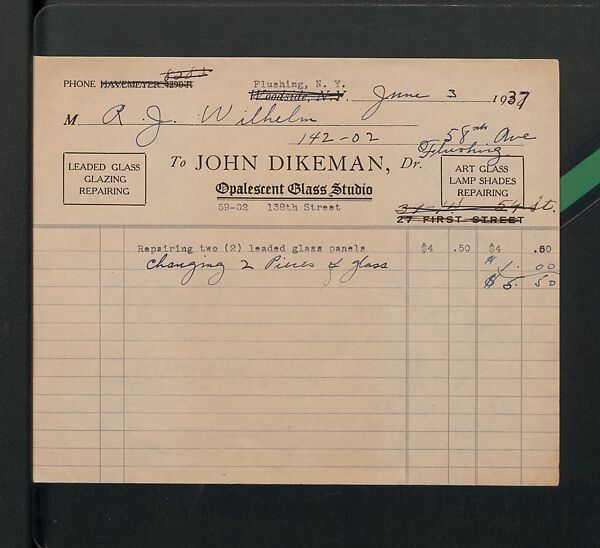 PHONE HAVEMEYER
Flushing, N. Y.
Woodside, N.Y. June 3 1937
M R. J. Wilhelm
142-02 58th Ave
Flushing
LEADED GLASS
GLAZING
REPAIRING
To JOHN DIKEMAN, Dr.
Opalescent Glass Studio
59-02 138th Street
ART GLASS
LAMP SHADES
REPAIRING
54 St.
27 FIRST STREET
Repairing two (2) leaded glass panels $4 .50 $4 .50
Changing 2 Pieces of glass $ 1. 00
$ 5. 50